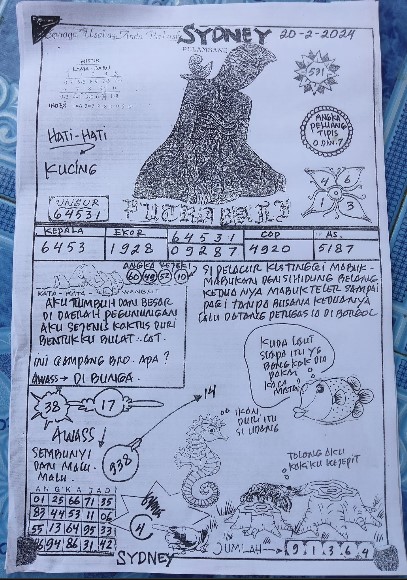 SYDNEY 20-2-2024
PELAMBANG
591
HATI-HATI
KUCING
ANGKA
PELUANG
TIPIS
0 DAN 7
6
1 3
UNSUR
64531
PUTRA BALI
KEPALA EKOR 64531 COP AS.
6453 1928 09287 4920 5187
ANGKA REJEKI
60 48 52 10
KATA-KATA
AKU TUMBUH DAN BESAR
DI DAERAH PEGUNUNGAN
AKU SEJENIS KAKTUS DURI
BENTUKKU BULAT.
INI GAMPANG BRO. APA?
AWAS → DI BUNGA.
SI PELACUR KLS TINGGI MABUK-
MABUKAN DGN SI HIDUNG BELANG
KEDUA NYA MABUK TELER SAMPAI
PAGI TANPA BUSANA KEDUANYA
LALU DATANG PETUGAS IA DI BORGOL
KUDA LAUT
SIAPA ITU YG
BENGKAK DIA
PAKAI
KACA
MATA?
38 17
14
IKAN
DURI ITU
SI UDANG
AWASS
SEMBUNYI
DARI MALU-
MALU.
938
TOLONG AKU
KAKIKU KEJEPIT
ANGKA JADI
01 25 66 71 35
83 44 53 17 06
55 13 64 95 33
46 94 86 31 42
4
SYDNEY
JUMLAH → 9 1 3 6 4